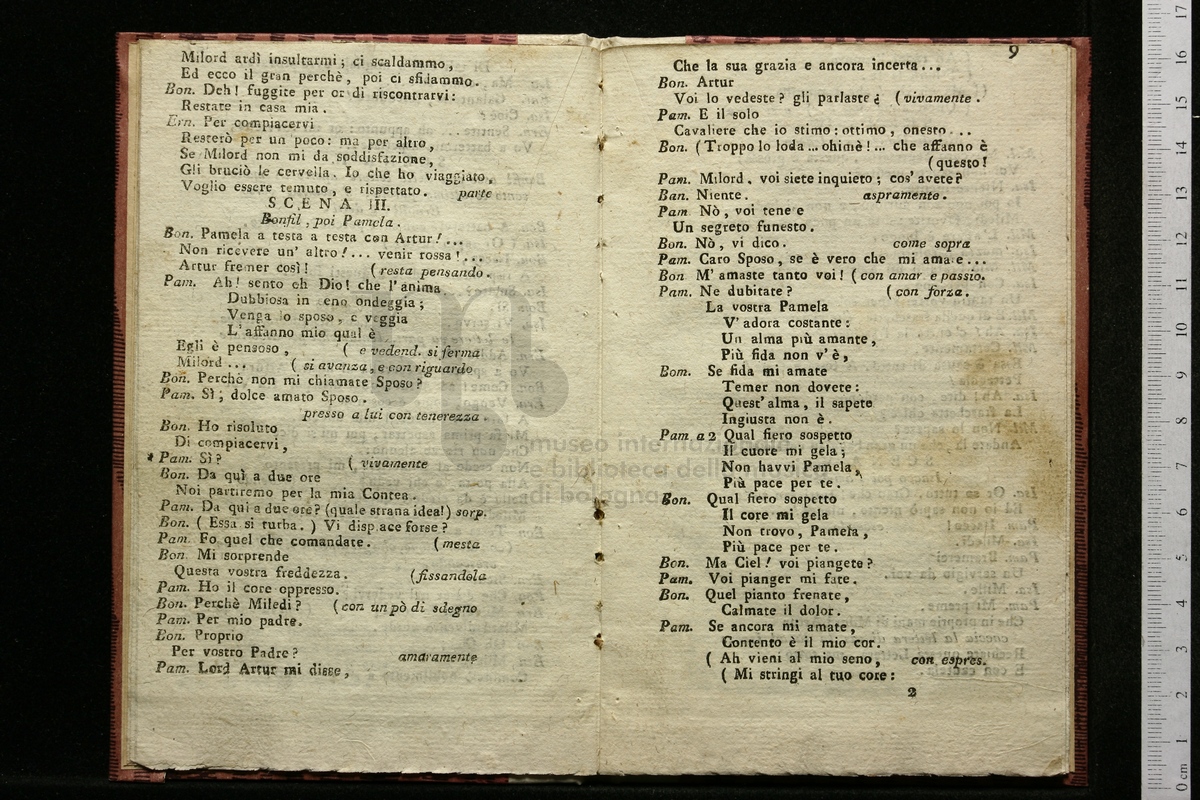 Milord ardì insultarmi; ci scaldammo,
Ed ecco il gran perchè, poi ci sfidammo.
Bon. Deh! fuggite per or di riscontrarvi:
Restate in casa mia.
Ern. Per compiacervi
Resterò per un poco: ma per altro,
Se Milord non mi da soddisfazione,
Gli bruciò le cervella. Io che ho viaggiato,
Voglio essere temuto, e rispettato. parte
SCENA III.
Bonfil, poi Pamela.
Bon. Pamela a testa a testa con Artur!...
Non ricevere un' altro!... venir rossa!...
Artur fremer così! (resta pensando.
Pam. Ah! sento oh Dio! che l'anima
Dubbiosa in seno ondeggia;
Venga lo sposo, e veggia
L'affanno mio qual è
Egli è pensoso, ( e vedend. si ferma
Milord... ( si avanza, e con riguardo
Bon. Perchè non mi chiamate Sposo?
Pam. Sì; dolce amato Sposo.
presso a lui con tenerezza.
Bon. Ho risoluto
Di compiacervi,
Pam. Sì? ( vivamente
Bon. Da quì a due ore
Noi partiremo per la mia Contea.
Pam. Da quì a due ore? (quale strana idea!) sorp.
Bon. ( Essa si turba. ) Vi disp ace forse?
Pam. Fo quel che comandate. (mesta
Bon. Mi sorprende
Questa vostra freddezza. (fissandola
Pam. Ho il core oppresso.
Bon. Perchè Miledi? (con un pò di sdegno
Pam. Per mio padre.
Bon. Proprio
Per vostro Padre? amaramente
Pam. Lord Artur mi disse,
9
Che la sua grazia e ancora incerta...
Bon. Artur
Voi lo vedeste? gli parlaste? (vivamente.
Pam. E il solo
Cavaliere che io stimo: ottimo, onesto...
Bon. (Troppo lo loda... ohimè!... che affanno è
(questo!
Pam. Milord, voi siete inquieto; cos' avete?
Ban. Niente. aspramente.
Pam Nò, voi tene e
Un segreto funesto.
Bon. Nò, vi dico. come sopra
Pam. Caro Sposo, se è vero che mi ama e...
Bon M' amaste tanto voi! (con amar e passio.
Pam. Ne dubitate? (con forza.
La vostra Pamela
V' adora costante:
Un alma più amante,
Più fida non v' è,
Bom. Se fida mi amate
Temer non dovete:
Quest' alma, il sapete
Ingiusta non è.
Pam a 2 Qual fiero sospetto
Il cuore mi gela;
Non havvi Pamela,
Più pace per te.
Bon. Qual fiero sospetto
Il core mi gela
Non trovo, Pamela,
Più pace per te.
Bon. Ma Ciel! voi piangete?
Pam. Voi pianger mi fate.
Bon. Quel pianto frenate,
Calmate il dolor.
Pam. Se ancora mi amate,
Contento è il mio cor.
( Ah vieni al mio seno, con espres.
( Mi stringi al tuo core:
2
museo internazionale
e biblioteca della musica
di bologna